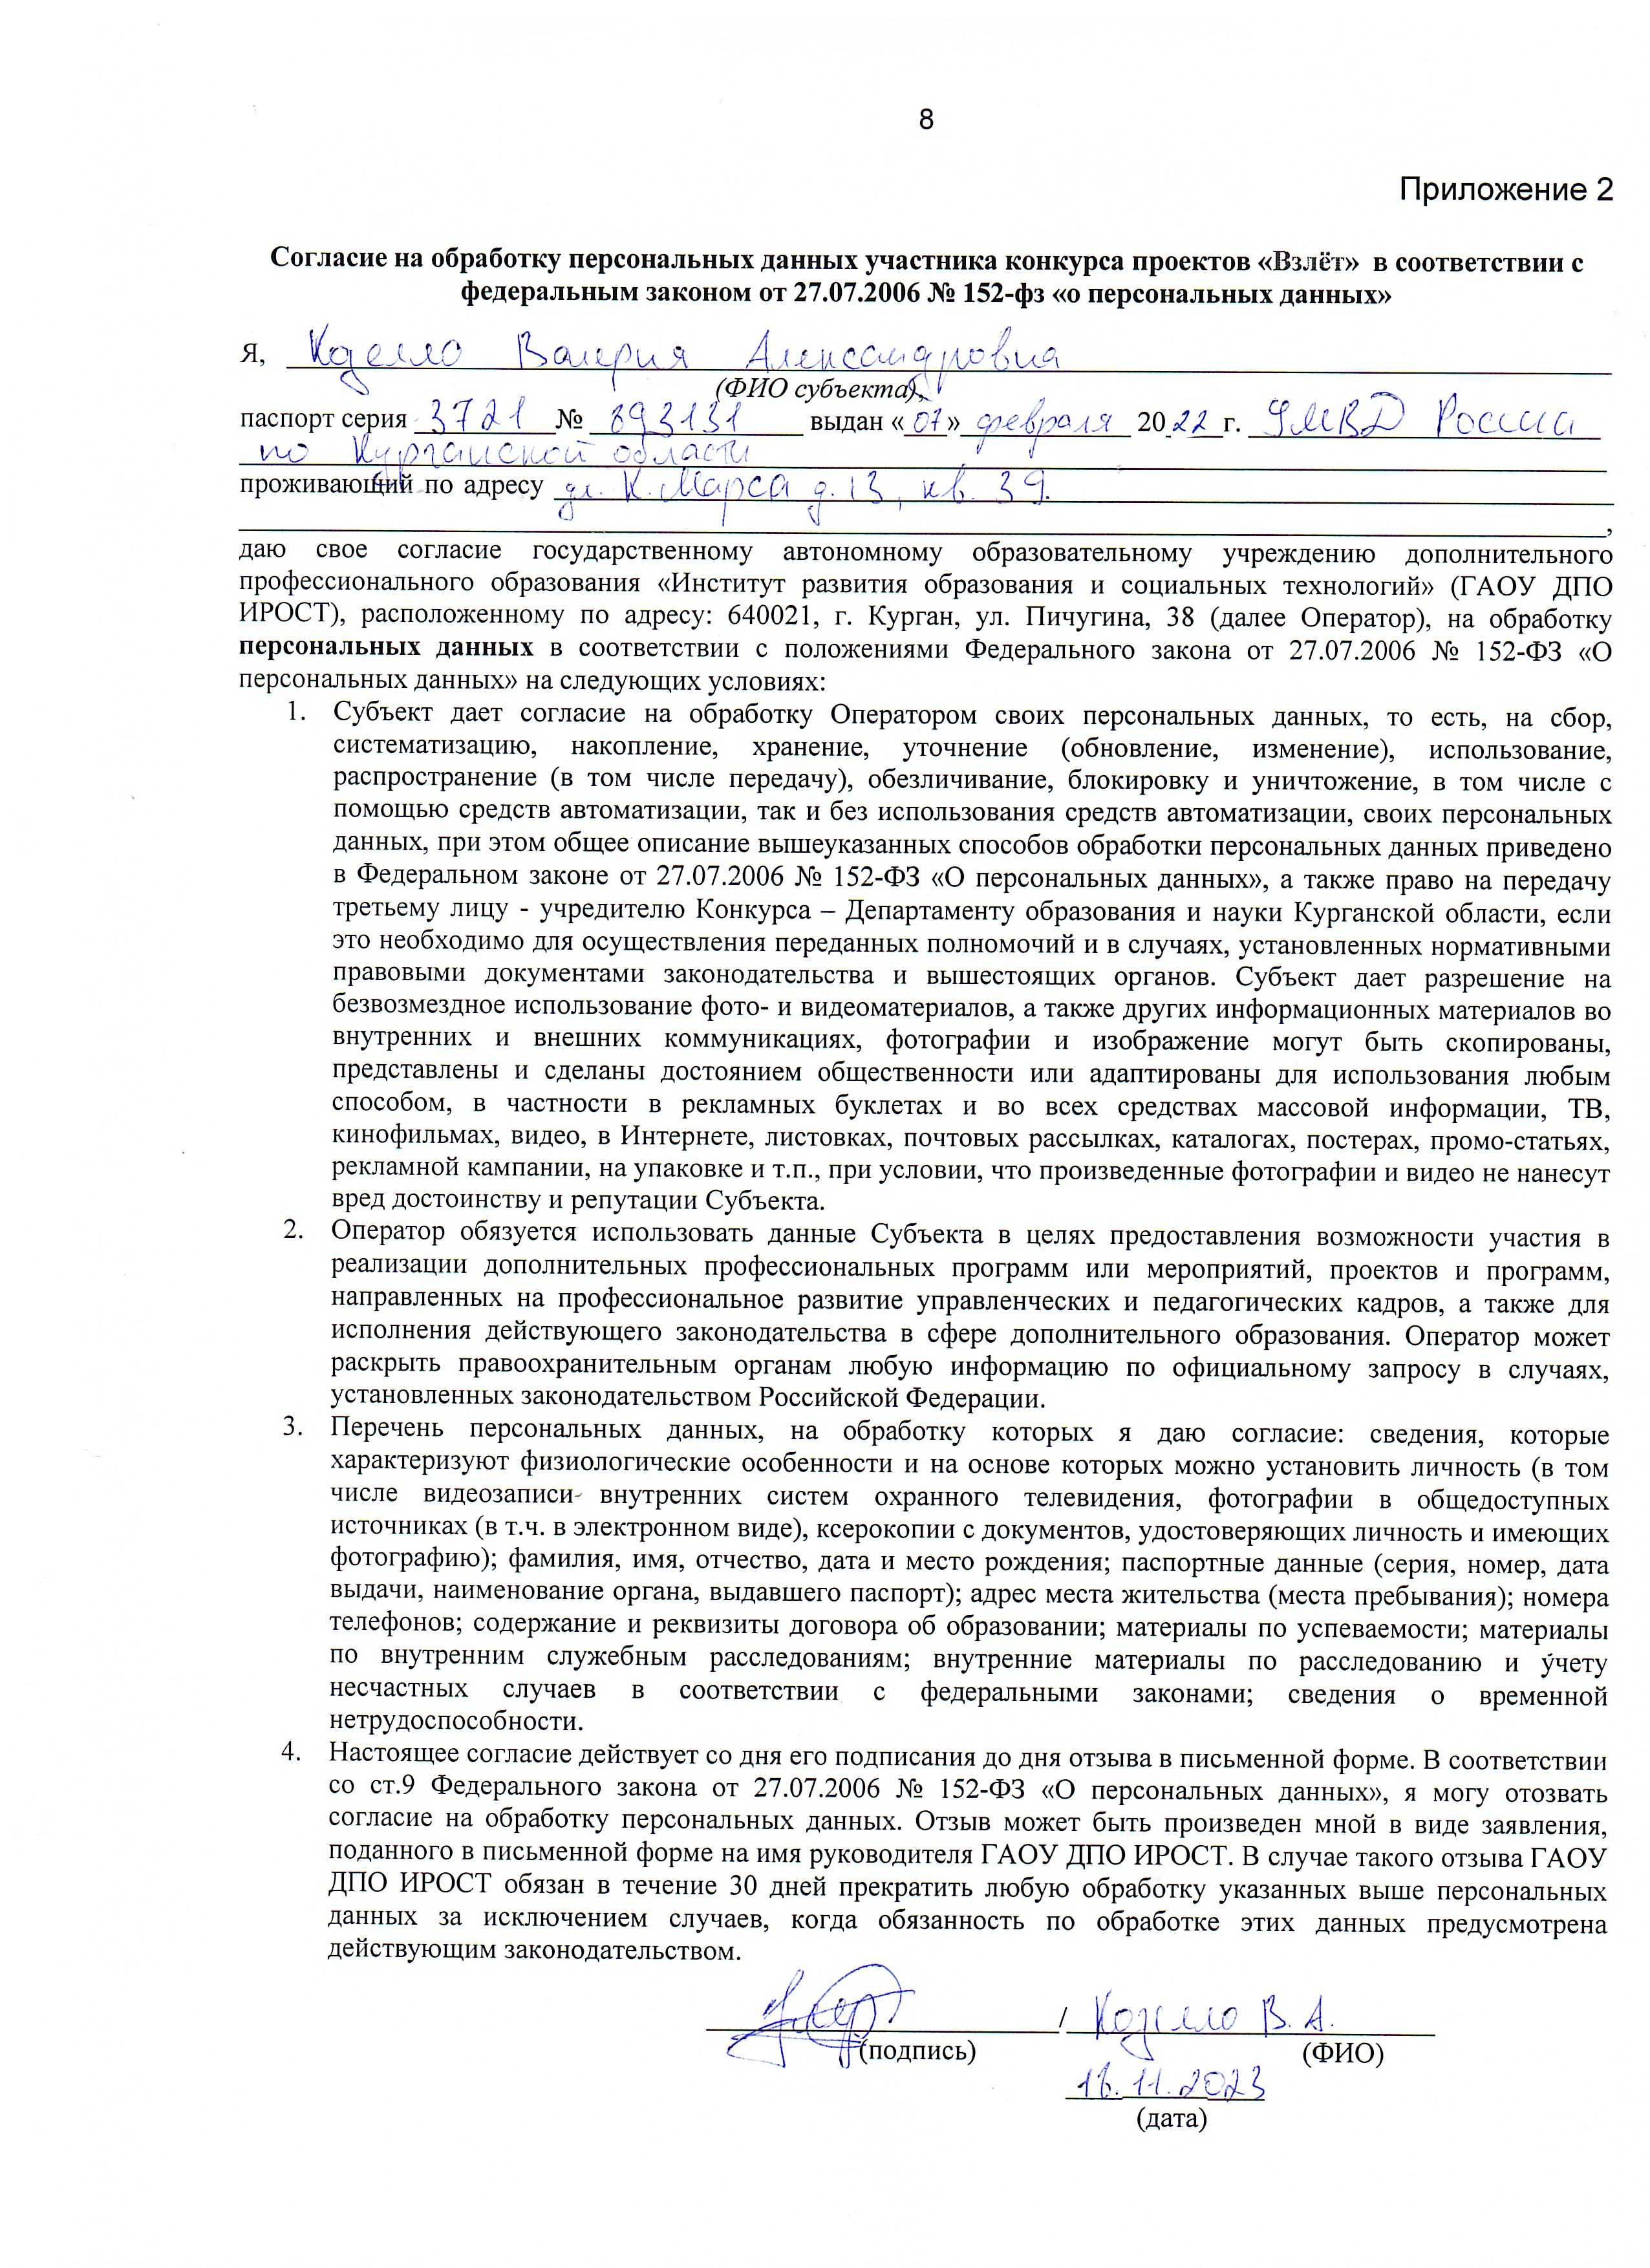 8
Приложение 2
Согласие на обработку персональных данных участника конкурса проектов «Взлёт» в соответствии с
федеральным законом от 27.07.2006 № 152-фз «о персональных данных»
Я, Козелло Валерия Александровна
(ФИО субъекта),
паспорт серия 3721 № 893131 выдан «07» февраля 2022 г. УМВД России
по Курганской области
проживающий по адресу ул. К. Маркса д. 13, кв. 39.
,
даю свое согласие государственному автономному образовательному учреждению дополнительного
профессионального образования «Институт развития образования и социальных технологий» (ГАОУ ДПО
ИРОСТ), расположенному по адресу: 640021, г. Курган, ул. Пичугина, 38 (далее Оператор), на обработку
персональных данных в соответствии с положениями Федерального закона от 27.07.2006 № 152-ФЗ «О
персональных данных» на следующих условиях:
1. Субъект дает согласие на обработку Оператором своих персональных данных, то есть, на сбор,
систематизацию, накопление, хранение, уточнение (обновление, изменение), использование,
распространение (в том числе передачу), обезличивание, блокировку и уничтожение, в том числе с
помощью средств автоматизации, так и без использования средств автоматизации, своих персональных
данных, при этом общее описание вышеуказанных способов обработки персональных данных приведено
в Федеральном законе от 27.07.2006 № 152-ФЗ «О персональных данных», а также право на передачу
третьему лицу - учредителю Конкурса – Департаменту образования и науки Курганской области, если
это необходимо для осуществления переданных полномочий и в случаях, установленных нормативными
правовыми документами законодательства и вышестоящих органов. Субъект дает разрешение на
безвозмездное использование фото- и видеоматериалов, а также других информационных материалов во
внутренних и внешних коммуникациях, фотографии и изображение могут быть скопированы,
представлены и сделаны достоянием общественности или адаптированы для использования любым
способом, в частности в рекламных буклетах и во всех средствах массовой информации, ТВ,
кинофильмах, видео, в Интернете, листовках, почтовых рассылках, каталогах, постерах, промо-статьях,
рекламной кампании, на упаковке и т.п., при условии, что произведенные фотографии и видео не нанесут
вред достоинству и репутации Субъекта.
2. Оператор обязуется использовать данные Субъекта в целях предоставления возможности участия в
реализации дополнительных профессиональных программ или мероприятий, проектов и программ,
направленных на профессиональное развитие управленческих и педагогических кадров, а также для
исполнения действующего законодательства в сфере дополнительного образования. Оператор может
раскрыть правоохранительным органам любую информацию по официальному запросу в случаях,
установленных законодательством Российской Федерации.
3. Перечень персональных данных, на обработку которых я даю согласие: сведения, которые
характеризуют физиологические особенности и на основе которых можно установить личность (в том
числе видеозаписи внутренних систем охранного телевидения, фотографии в общедоступных
источниках (в т.ч. в электронном виде), ксерокопии с документов, удостоверяющих личность и имеющих
фотографию); фамилия, имя, отчество, дата и место рождения; паспортные данные (серия, номер, дата
выдачи, наименование органа, выдавшего паспорт); адрес места жительства (места пребывания); номера
телефонов; содержание и реквизиты договора об образовании; материалы по успеваемости; материалы
по внутренним служебным расследованиям; внутренние материалы по расследованию и учету
несчастных случаев в соответствии с федеральными законами; сведения о временной
нетрудоспособности.
4. Настоящее согласие действует со дня его подписания до дня отзыва в письменной форме. В соответствии
со ст.9 Федерального закона от 27.07.2006 № 152-ФЗ «О персональных данных», я могу отозвать
согласие на обработку персональных данных. Отзыв может быть произведен мной в виде заявления,
поданного в письменной форме на имя руководителя ГАОУ ДПО ИРОСТ. В случае такого отзыва ГАОУ
ДПО ИРОСТ обязан в течение 30 дней прекратить любую обработку указанных выше персональных
данных за исключением случаев, когда обязанность по обработке этих данных предусмотрена
действующим законодательством.
/ Козелло В. А.
(подпись) (ФИО)
16.11.2023
(дата)